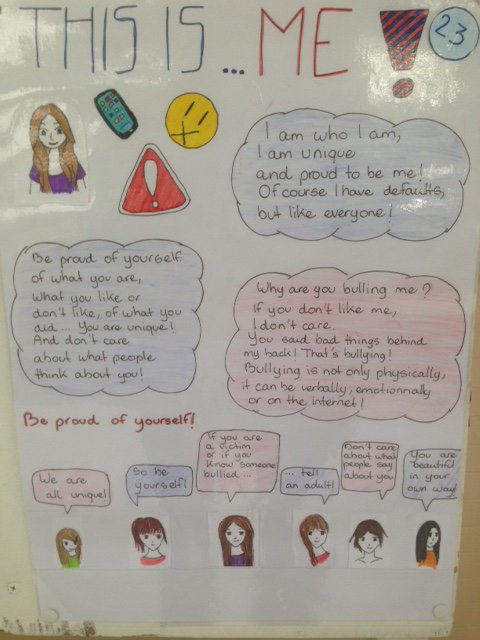 THIS IS ... ME !
23
I am who I am,
I am unique
and proud to be me!
Of course I have defaults,
but like everyone!
Be proud of yourself
of what you are,
what you like or
don't like, of what you
did ... You are unique!
And don't care
about what people
think about you!
Why are you bulling me?
If you don't like me,
I don't care.
You said bad things behind
my back! That's bullying!
Bullying is not only physically,
it can be verbally, emotionnally
or on the internet!
Be proud of yourself!
We are
all unique!
So be
yourself!
If you are
a victim
or if you
know someone
bullied ...
... tell
an adult!
Don't care
about what
people say
about you
You are
beautiful
in your
own way